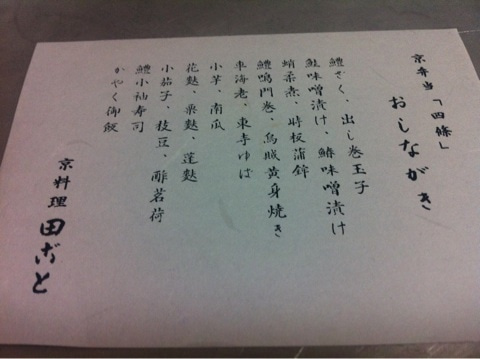 京弁当「四條」
おしながき
鱧ざく、出し巻玉子
鮭味噌漬け、鰆味噌漬け
蛸柔煮、時板蒲鉾
鱧鳴門巻、烏賊黄身焼き
車海老、東寺ゆば
小芋、南瓜
花麩、粟麩、蓬麩
小茄子、枝豆、酢茗荷
鱧小袖寿司
かやく御飯
京料理 田ごと